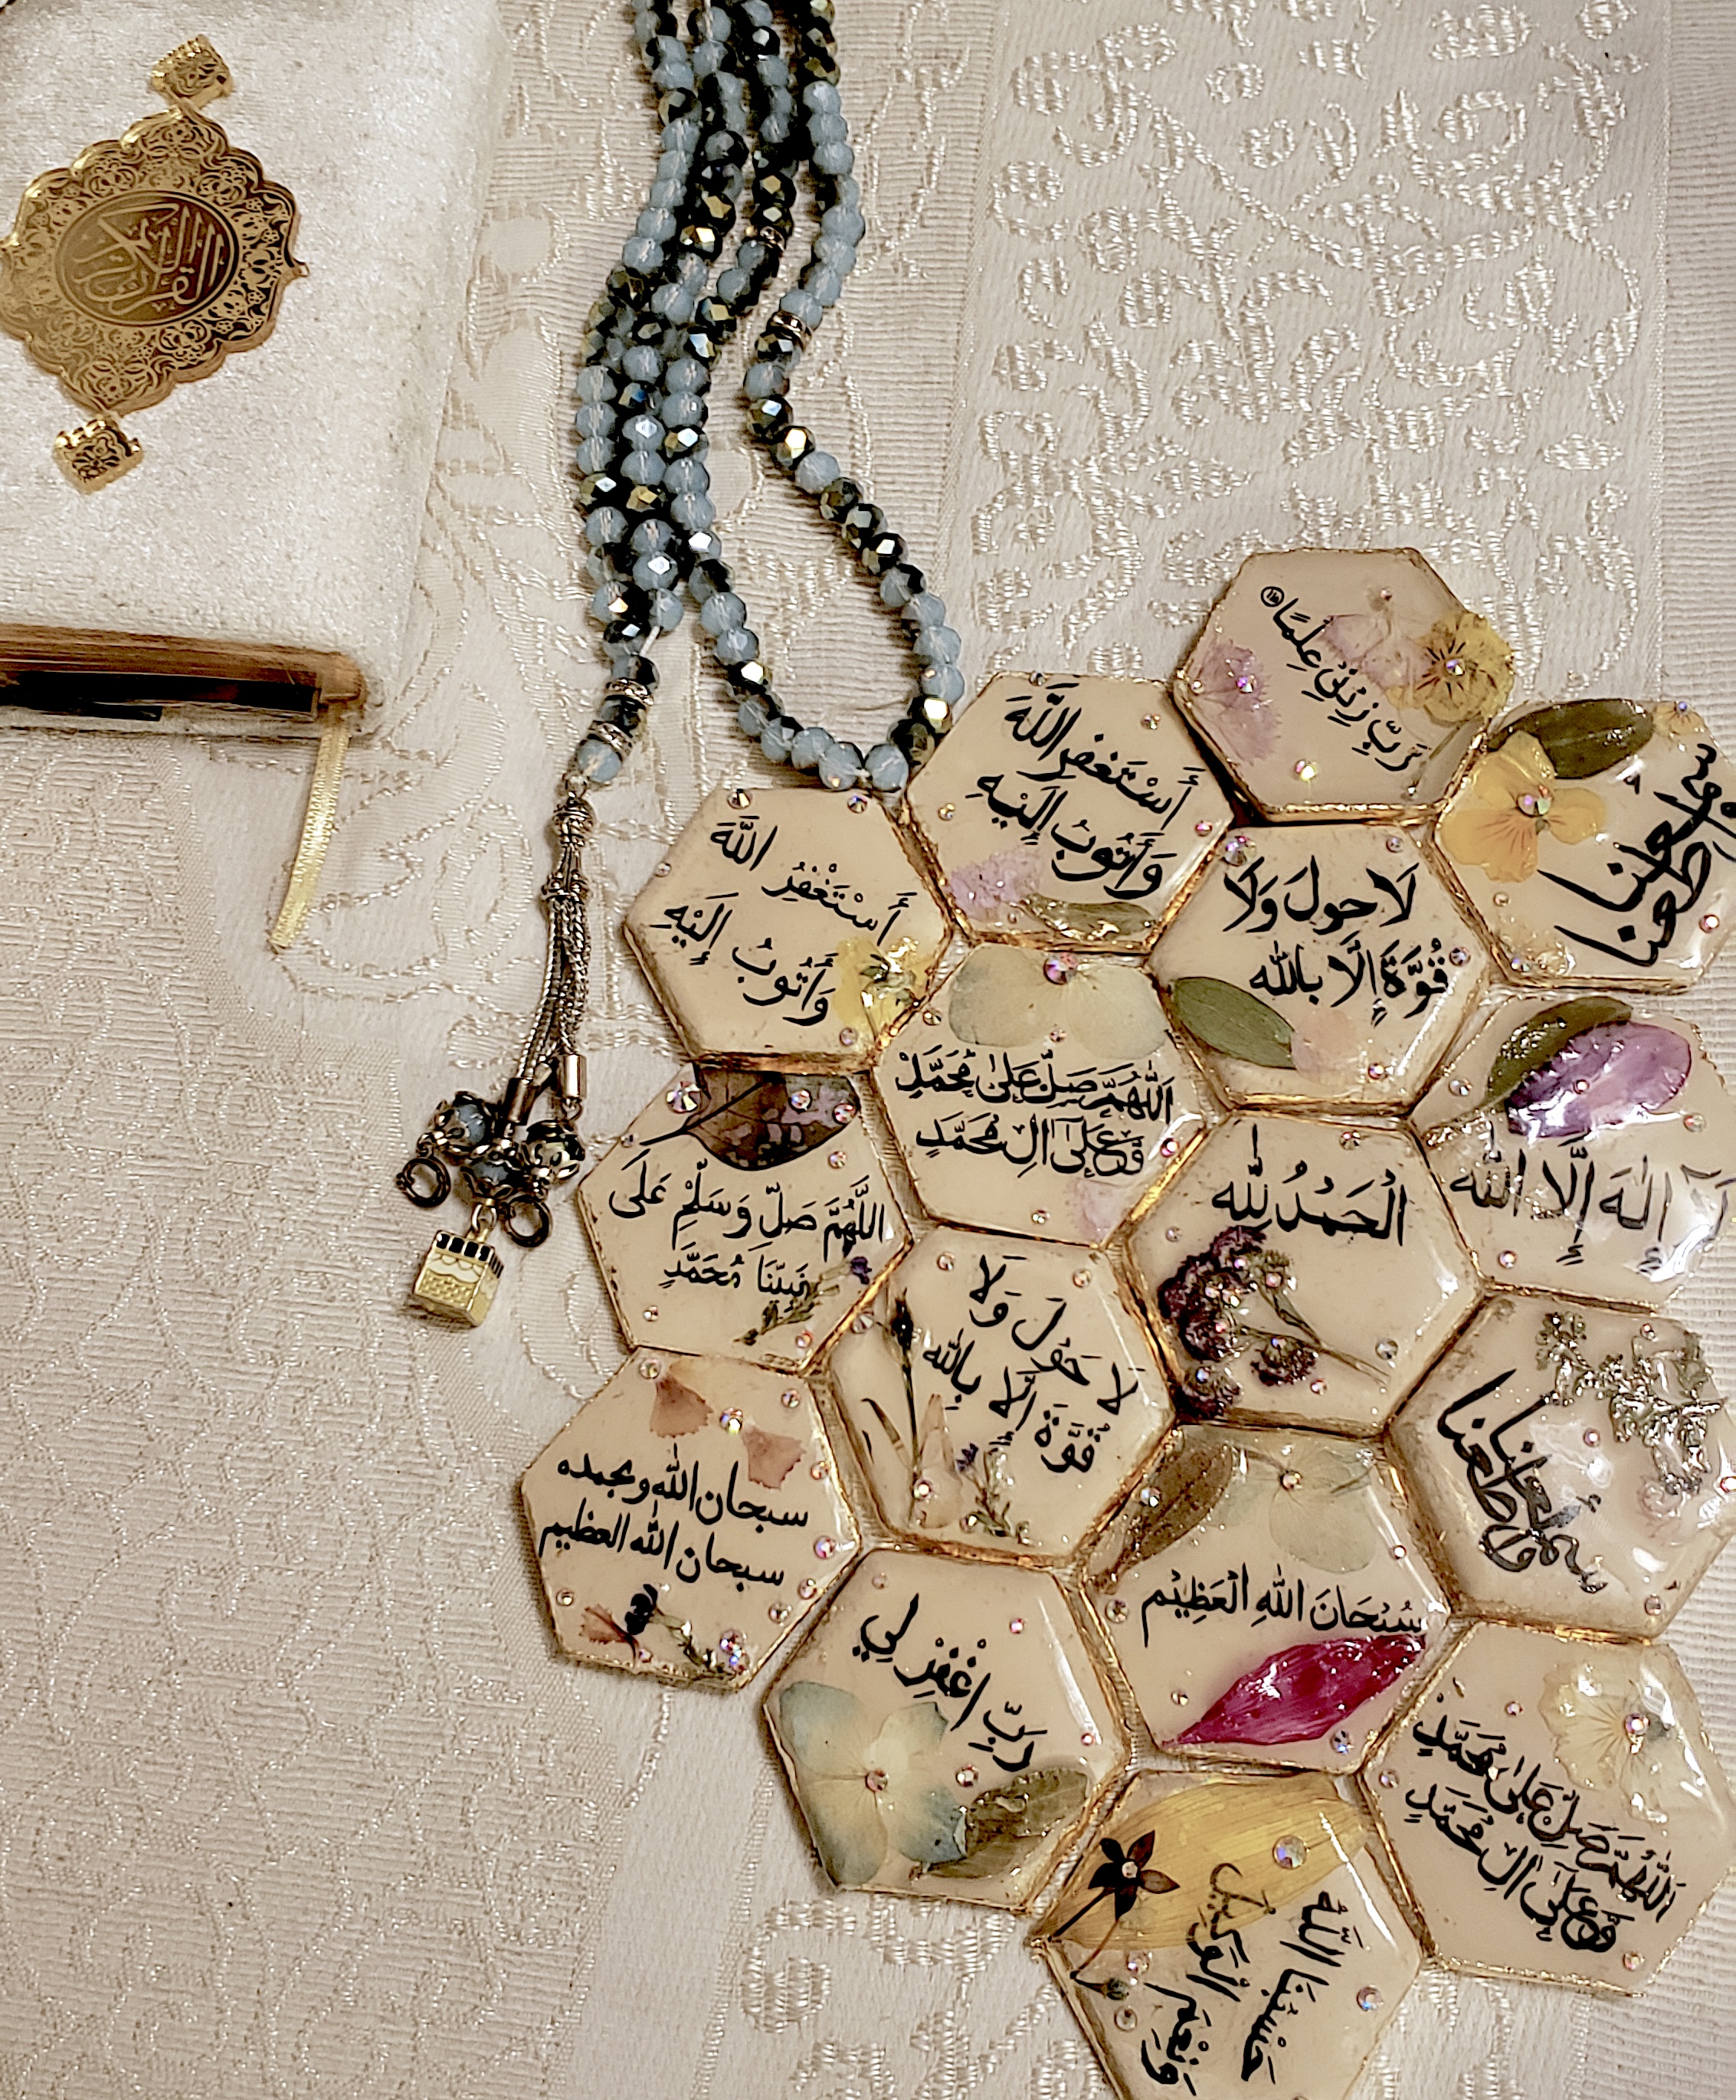 القرآن الكريم
رَبِّ زِدْنِي عِلْمًا
أَسْتَغْفِرُ اللَّهَ
وَأَتُوبُ إِلَيْهِ
سمعنا
وأطعنا
أَسْتَغْفِرُ اللَّهَ
وَأَتُوبُ إِلَيْهِ
لَا حولَ وَلَا
قُوَّةَ إِلَّا بالله
اللَّهُمَّ صَلِّ عَلىٰ مُحَمَّدٍ
وَعَلىٰ آلِ مُحَمَّدٍ
إِلٰهَ إِلَّا اللّٰه
اللَّهُمَّ صَلِّ وَسَلِّمْ عَلَى
نَبِيِّنَا مُحَمَّدٍ
الْحَمْدُ لِلّٰه
لَا حَوْلَ وَلَا
قُوَّةَ إِلَّا بِاللّٰه
سمعنا
وأطعنا
سبحان الله وبحمده
سبحان الله العظيم
سُبْحَانَ اللّٰهِ الْعَظِيْم
رَبِّ اغْفِرْ لِي
اللَّهُمَّ صَلِّ عَلىٰ مُحَمَّدٍ
وَعَلىٰ آلِ مُحَمَّدٍ
حَسْبُنَا اللَّهُ
وَنِعْمَ الْوَكِيلُ